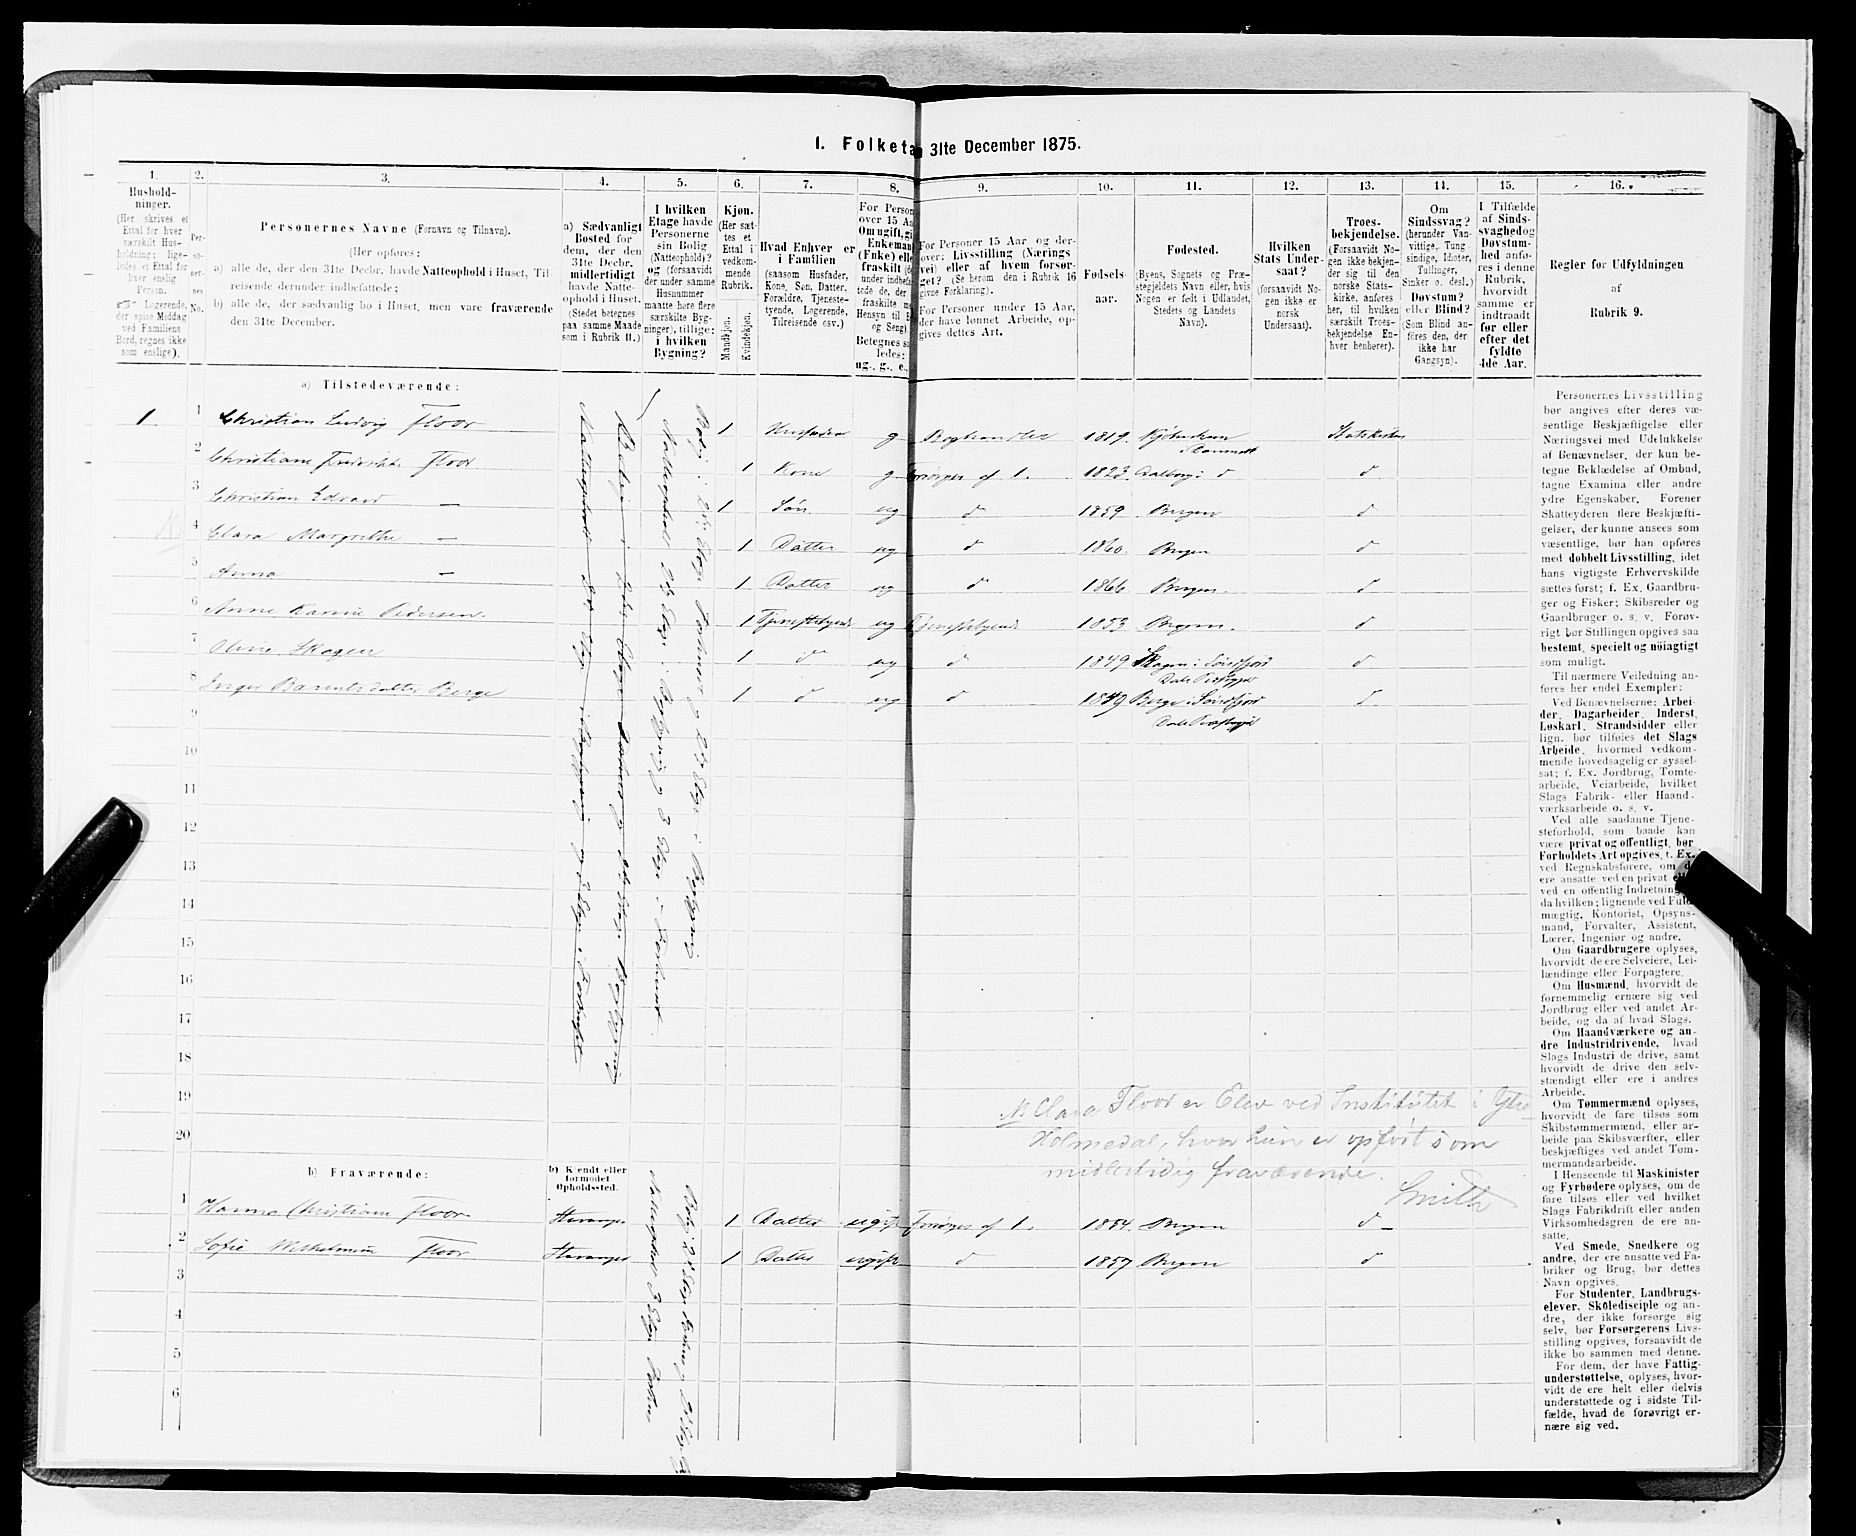 1. Folketæ 31te December 1875.
1. 2. 3. 4. 5. 6. 7. 8. 9. 10. 11. 12. 13. 14. 15. 16.
Hushold-
ninger.
(Her skrives et
Ettal for hver
særskilt Hus-
holdning; lige-
ledes et Ettal for
hver enslig
Person.
☞ Logerende,
der spise Middag
ved Familiens
Bord, regnes ikke
som enslige).
Per-
so-
ner-
nes
No.
Personernes Navne (Fornavn og Tilnavn).
(Her opføres:
a) alle de, der den 31te Decbr. havde Natteophold i Huset, Til-
reisende derunder indbefattede;
b) alle de, der sædvanlig bo i Huset, men vare fraværende
den 31te December.
a) Sædvanligt
Bosted for
dem, der den
31te Decbr.
midlertidigt
havde Natte-
ophold i Huset.
(Stedet betegnes
paa samme Maade
som i Rubrik 11.)
I hvilken
Etage havde
Personerne
sin Bolig
(Natteophold)?
og (forsaavidt
der under samme
Husnummer
maatte høre flere
særskilte Byg-
ninger), tillige:
i hvilken
Bygning?
Kjøn.
(Her sæt-
tes et
Ettal i
vedkom-
mende
Rubrik.
Mandkjøn.
Kvindekjøn.
Hvad Enhver er
i Familien
(saasom Husfader,
Kone, Søn, Datter,
Forældre, Tjeneste-
tyende, Logerende,
Tilreisende osv.)
For Person
over 15 Aa
Om ugift, gi
Enkemand
(Enke) elle
fraskilt
ledes:
ug., g., e.,
For Personer 15 Aar og der-
over: Livsstilling (Nærings
vei) eller af hvem forsør-
get? (Se herom den i Rubrik 16
givne Forklaring).
For Personer under 15 Aar,
der have lønnet Arbeide, op-
gives dettes Art.
Fødsels-
aar.
Fødested.
(Byens, Sognets og Præ-
stegjeldets Navn eller, hvis
Nogen er født i Udlandet,
Stedets og Landets
Navn).
Hvilken
Stats Under-
saat?
(forsaavidt No-
gen ikke er
norsk
Undersaat).
Troes-
bekjendelse.
(Forsaavidt No-
gen ikke bekjen-
der sig til den
norske Stats-
kirke, anføres
her, til hvilken
særskilt Troes-
bekjendelse En-
hver henhører).
Om
Sindssvag?
(herunder Van-
vittige, Tung
sindige, Idioter,
Tullinger,
Sinker o. desl.)
Døvstum?
eller Blind?
(Som Blind an-
føres den, der
ikke har
Gangsyn).
I Tilfælde
af Sinds-
svaghed og
Døvstum-
hed anfø-
res i denne
Rubrik,
hvorvidt
samme er
indtraadt
før eller
efter det
fyldte
4de Aar.
Regler for Udfyldningen
af
Rubrik 9.
a) Tilstedeværende:
1 1 Christian Ludvig Floor 1 Husfader g Boghandler 1819. Kjøbenhavn Statskirken
Danmark
2 Christiane Frederikke Floor 1 Kone g Forsørges af 1. 1823. Aalborg i d d
3 Christian Edvard — 1 Søn ug d 1859 Bergen d
4 Clara Margrethe — 1 Datter ug d 1860. Bergen d
5 Anna — 1 Datter ug d 1866 Bergen. d
6 Anne Karine Pedersen. 1 Tjenestetyende ug Tjenestetyende 1853 Bergen. d
7 Oline Skagen 1 d ug d 1849 Skagen i Søndfjord d
Dale Præstegjeld
8 Inger Barentsdatter Berge 1 d ug d 1849 Berge i Søndfjord d
Dale Præstegjeld
10
11
12
13
14
15
16
17
18
19
20
NB Clara Floor er Elev ved Institutet i Ytre
Holmedal, hvor hun er opført som
midlertidig fraværende.
Smith
b) Fraværende:
b) Kjendt eller
formodet
Opholdssted.
1 Hanna Christiane Floor Stavanger 1 Datter ugift Forsørges af 1. 1854. Bergen d
2 Sofie Wilhelmine Floor Stavanger 1 Datter ugift d 1857 Bergen d
3
4
5
6
Personernes Livsstilling
bør angives efter deres væ-
sentlige Beskjæftigelse eller
Næringsvei med Udelukkelse
af Benævnelser, der kun be-
tegne Beklædelse af Ombud,
tagne Examina eller andre
ydre Egenskaber. Forener
Skatteyderen flere Beskjæfti-
gelser, der kunne ansees som
væsentlige, bør han opføres
med dobbelt Livsstilling, idet
hans vigtigste Erhvervskilde
sættes først; f. Ex. Gaardbru-
ger og Fisker; Skibsreder og
Gaardbruger o. s. v. Forøv-
rigt bør Stillingen opgives saa
bestemt, specielt og nøiagtigt
som muligt.
Til nærmere Veiledning an-
føres her endel Exempler:
Ved Benævnelserne: Arbei-
der, Dagarbeider, Inderst,
Løskarl, Strandsidder eller
lign. bør tilføies det Slags
Arbeide, hvormed vedkom-
mende hovedsagelig er syssel-
sat; f. Ex. Jordbrug, Tomte-
arbeide, Veiarbeide, hvilket
Slags Fabrik- eller Haand-
værksarbeide o. s. v.
Ved alle saadanne Tjene-
steforhold, som baade kan
være privat og offentligt, bør
Forholdets Art opgives, f. Ex.
ved Regnskabsførere, om d
ere ansatte ved en privat e
ved en offentlig Indretning
da hvilken; lignende ved Fuld
mægtig, Kontorist, Opsyns-
mand, Forvalter, Assistent,
Lærer, Ingeniør og andre.
Om Gaardbrugere oplyses,
hvorvidt de ere Selveiere, Lei-
lændinge eller Forpagtere.
Om Husmænd, hvorvidt de
fornemmelig ernære sig ved
Jordbrug eller ved andet Ar-
beide, og da af hvad Slags.
Om Haandværkere og an-
dre Industridrivende, hvad
Slags Industri de drive, samt
hvorvidt de drive den selv-
stændigt eller ere i andres
Arbeide.
Om Tømmermænd oplyses,
hvorvidt de fare tilsøs som
Skibstømmermænd, eller ar-
beide paa Skibsværfter, eller
beskjæftiges ved andet Tøm-
mermandsarbeide.
I Henseende til Maskinister
og Fyrbødere oplyses, om de
fare tilsøs eller ved hvilket
Slags Fabrikdrift eller anden
Virksomhedsgren de ere an-
satte.
Ved Smede, Snedkere og
andre, der ere ansatte ved Fa-
briker og Brug, bør dettes
Navn opgives.
For Studenter, Landbrugs-
elever, Skoledisciple og an-
dre, der ikke forsørge sig
selv, bør Forsørgerens Livs-
stilling opgives, forsaavidt de
ikke bo sammen med denne.
For dem, der have Fattig-
understøttelse, oplyses, hvor-
vidt de ere helt eller delvis
understøttede og i sidste Til-
fælde, hvad de forøvrigt er-
nære sig ved.